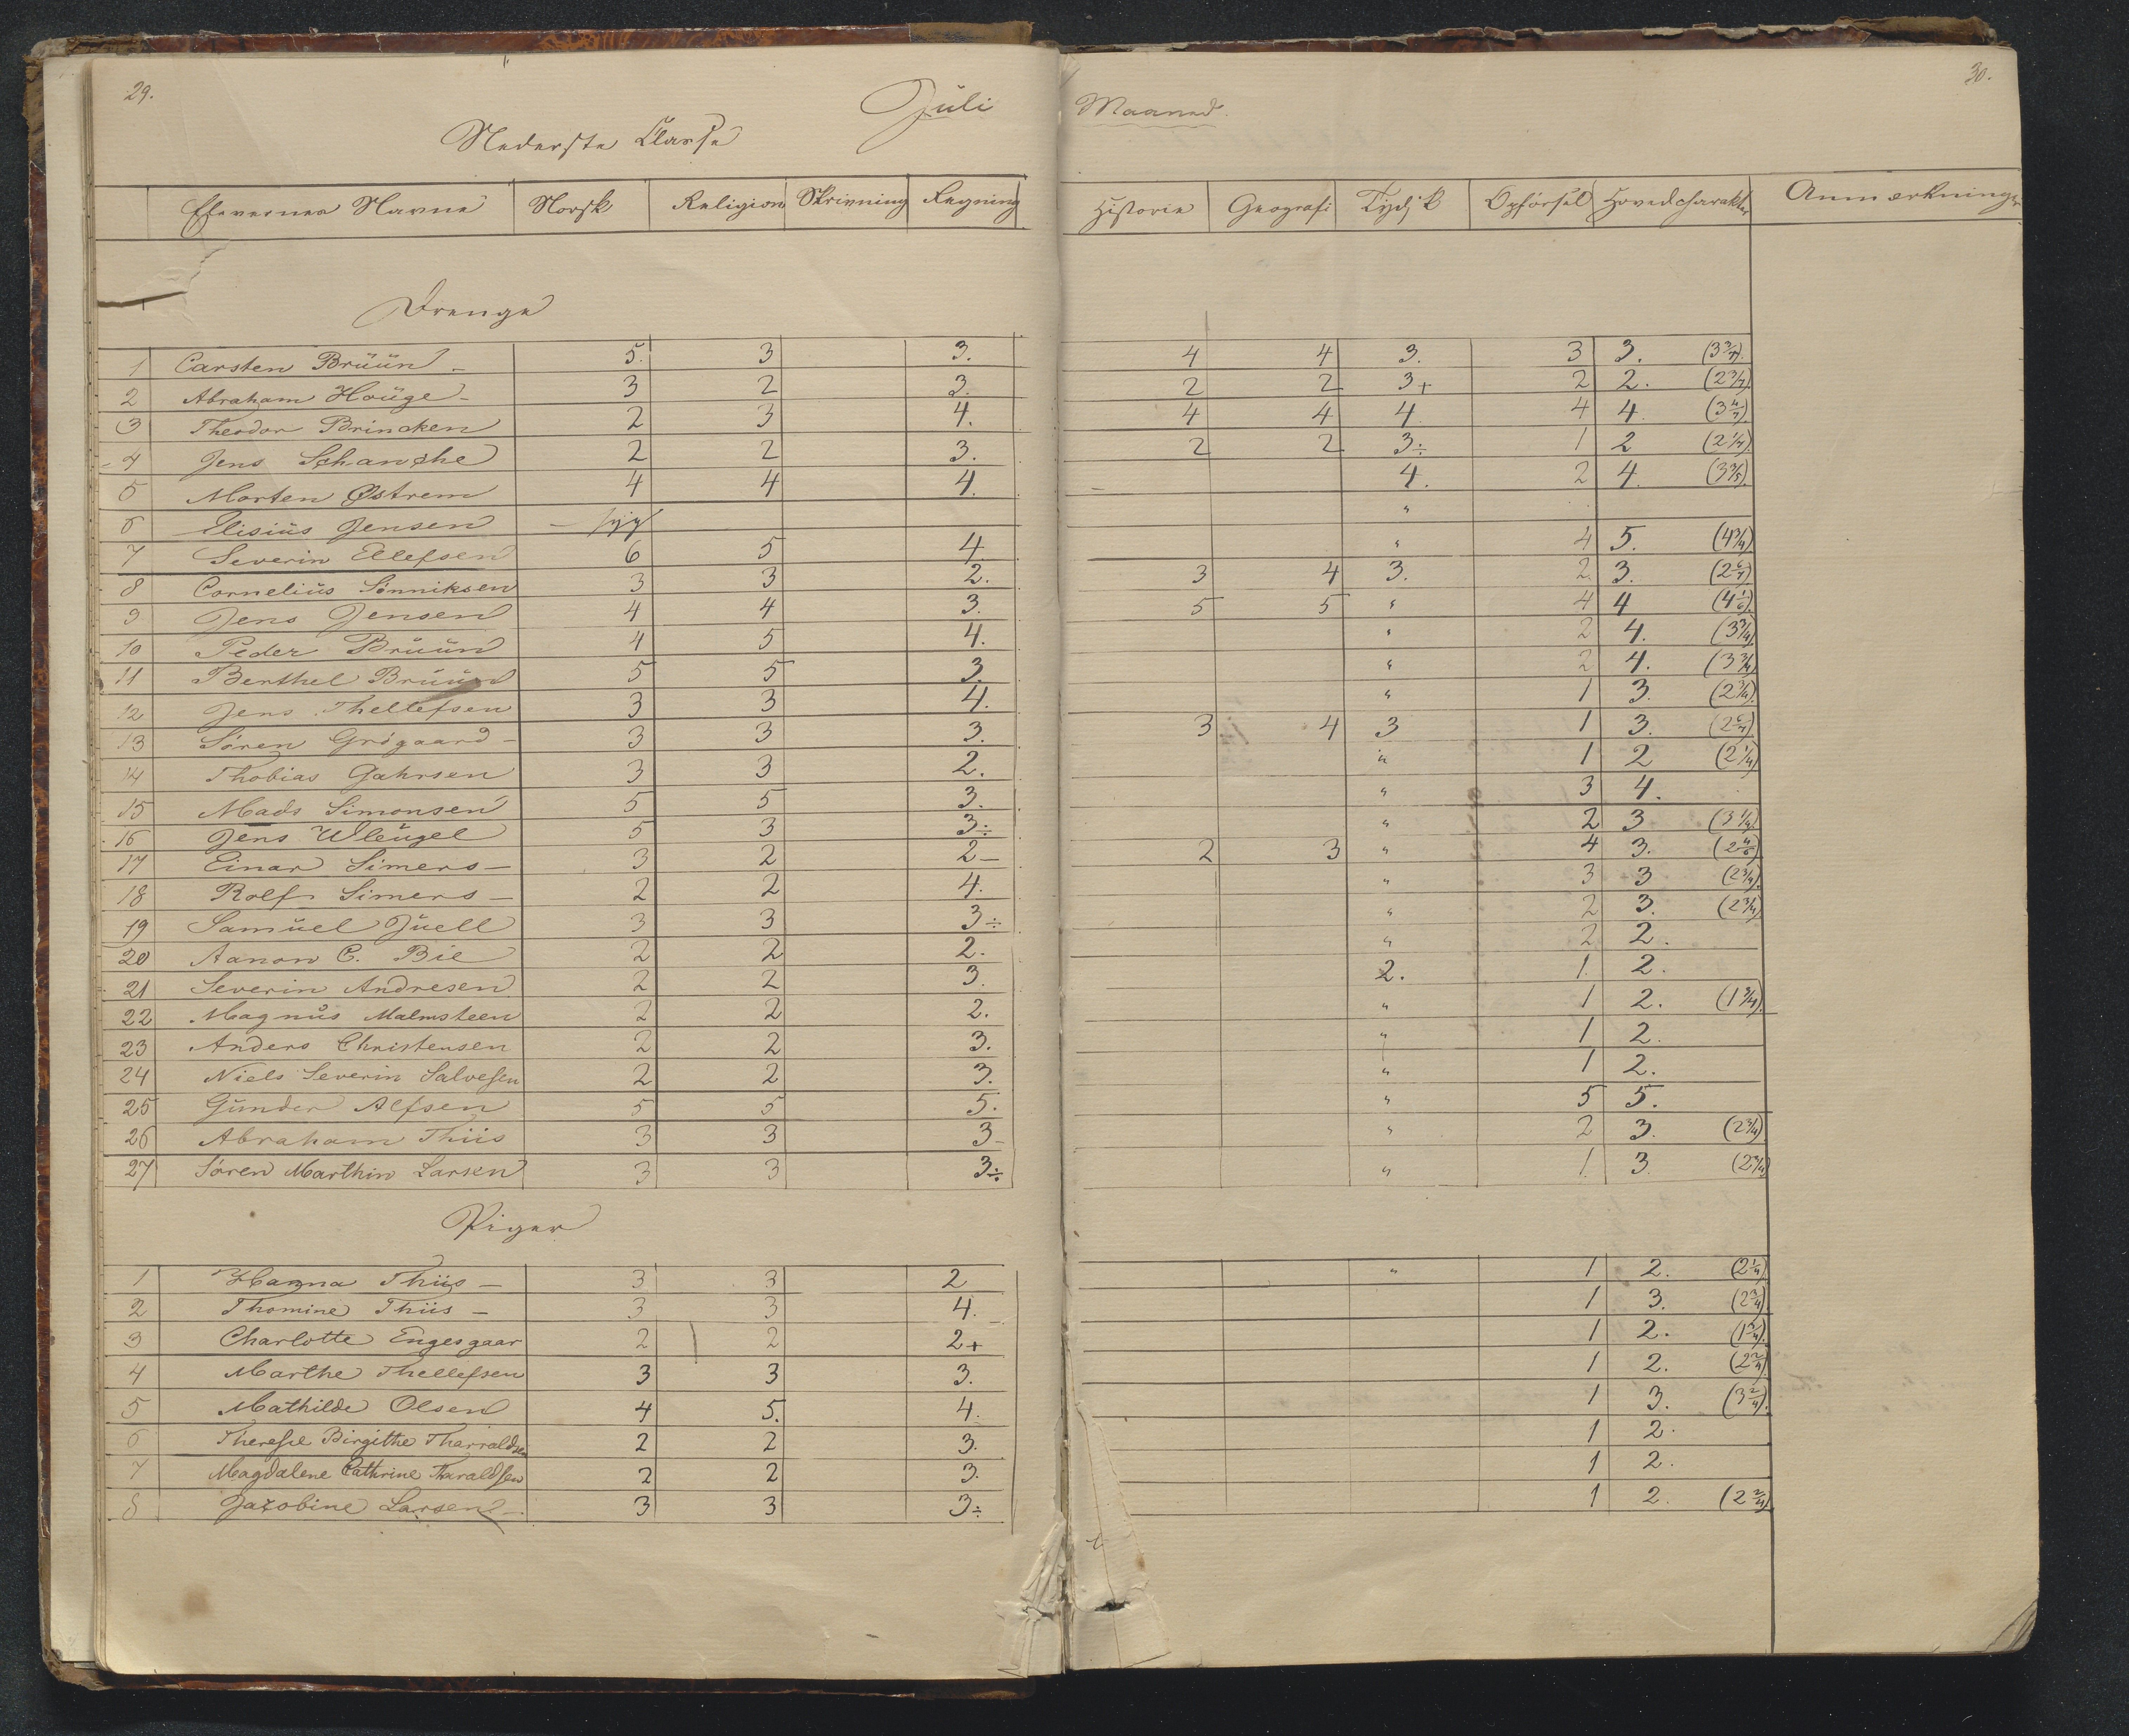 29.
30.
Juli
Maaned.
Nederste Classe
Elevernes Navne Norsk Religion Skrivning Regning Historie Geografi Tydsk Opførsel Hovedcharakter Anmærkninger
Drenge
1 Carsten Brüün 5. 3 3. 4 4 3. 3 3. (3 3/7).
2 Abraham Houge 3 2 3. 2 2 3+ 2 2. (2 3/7)
3 Theodor Brincken 2 3 4. 4 4 4 4 4. (3 4/7).
4 Jens Schanche 2 2 3. 2 2 3÷ 1 2 (2 1/7).
5 Morten Østrem 4 4 4. 4. 2 4. (3 3/5).
6 Elisius Jensen – syg "
7 Severin Ellefsen 6 5 4 " 4 5. (4 3/4).
8 Cornelius Sönniksen 3 3 2. 3 4 3. 2. 3. (2 6/7)
9 Jens Jensen 4 4 3. 5 5 " 4 4 (4 1/6).
10 Peder Brüün 4 5 4. " 2 4. (3 3/4)
11 Berthel Brüün 5 5 3. " 2 4. (3 3/4)
12 Jens Thellefsen 3 3 4. " 1 3. (2 3/4).
13 Søren Grögaard 3 3 3. 3 4 3 1 3. (2 6/7).
14 Thobias Gahrsen 3 3 2. " 1 2 (2 1/4)
15 Mads Simonsen 5 5 3. " 3 4.
16 Jens Wleügel 5 3 3÷ " 2 3 (3 1/4)
17 Einar Simers – 3 2 2 – 2 3 " 4 3. (2 4/6)
18 Rolf Simers – 2 2 4. " 3 3 (2 3/4).
19 Samüel Jüell 3 3 3÷ " 2 3. (2 3/4)
20 Aanon C. Bie 2 2 2. " 2 2.
21 Severin Andresen 2 2 3. 2. 1. 2.
22 Magnus Malmsteen 2 2 2. " 1 2. (1 3/4).
23 Anders Christensen 2 2 3. " 1 2.
24 Niels Severin Salvesen 2 2 3. " 1 2.
25 Gunder Alfsen 5 5 5. " 5 5.
26 Abraham Thiis 3 3 3– " 2 3. (2 3/4)
27 Søren Marthin Larsen 3 3 3÷ " 1. 3. (2 3/4)
Piger
1 Hanna Thiis – 3 3 2 " 1 2. (2 1/4)
2 Thomine Thiis – 3 3 4. 1 3. (2 3/4).
3 Charlotte Engesgaar 2 2 2+ 1 2. (1 3/4).
4 Marthe Thellefsen 3 3 3. 1 2. (2 2/4)
5 Mathilde Olsen 4 5. 4. 1 3. (3 2/4).
6 Therese Birgithe Tharraldsen 2 2 3. 1 2.
7 Magdalene Cathrine Tharaldsen 2 2 3. 1 2.
8 Jacobine Larsen – 3 3 3÷ 1 2. (2 2/4)